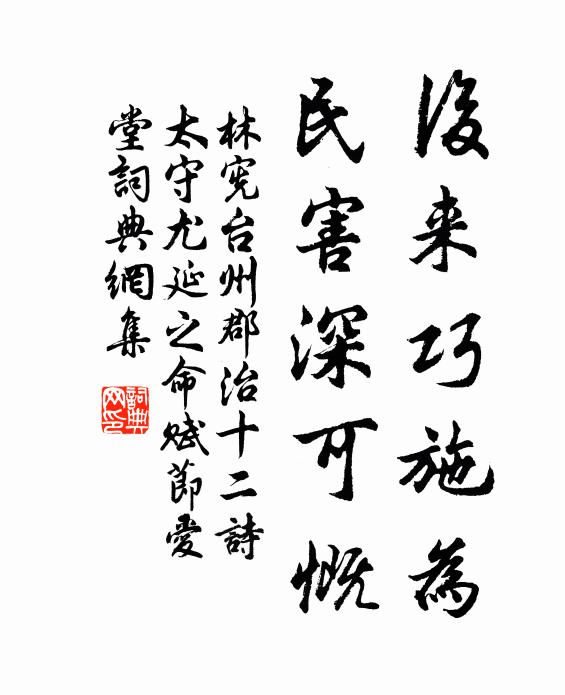 後来巧施為
民害深可慨
林宪台州郡治十二詩
太守尤延之命赋節愛
堂詞典網集
詞典网印